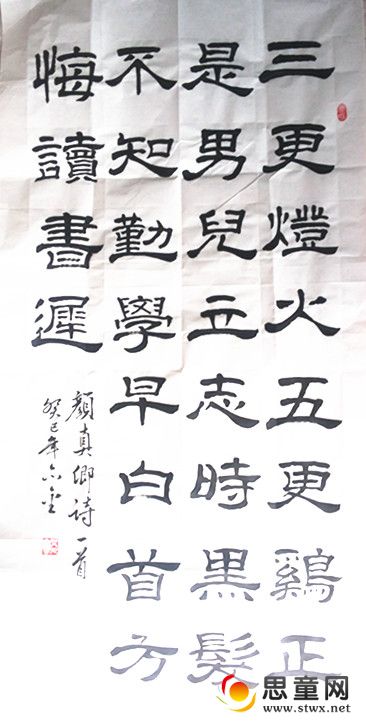 三更燈火五更鷄正
是男兒立志時黑髮
不知勤學早白首方
悔讀書遲
顏真卿詩一首
癸巳年
思童网
www.stwx.net